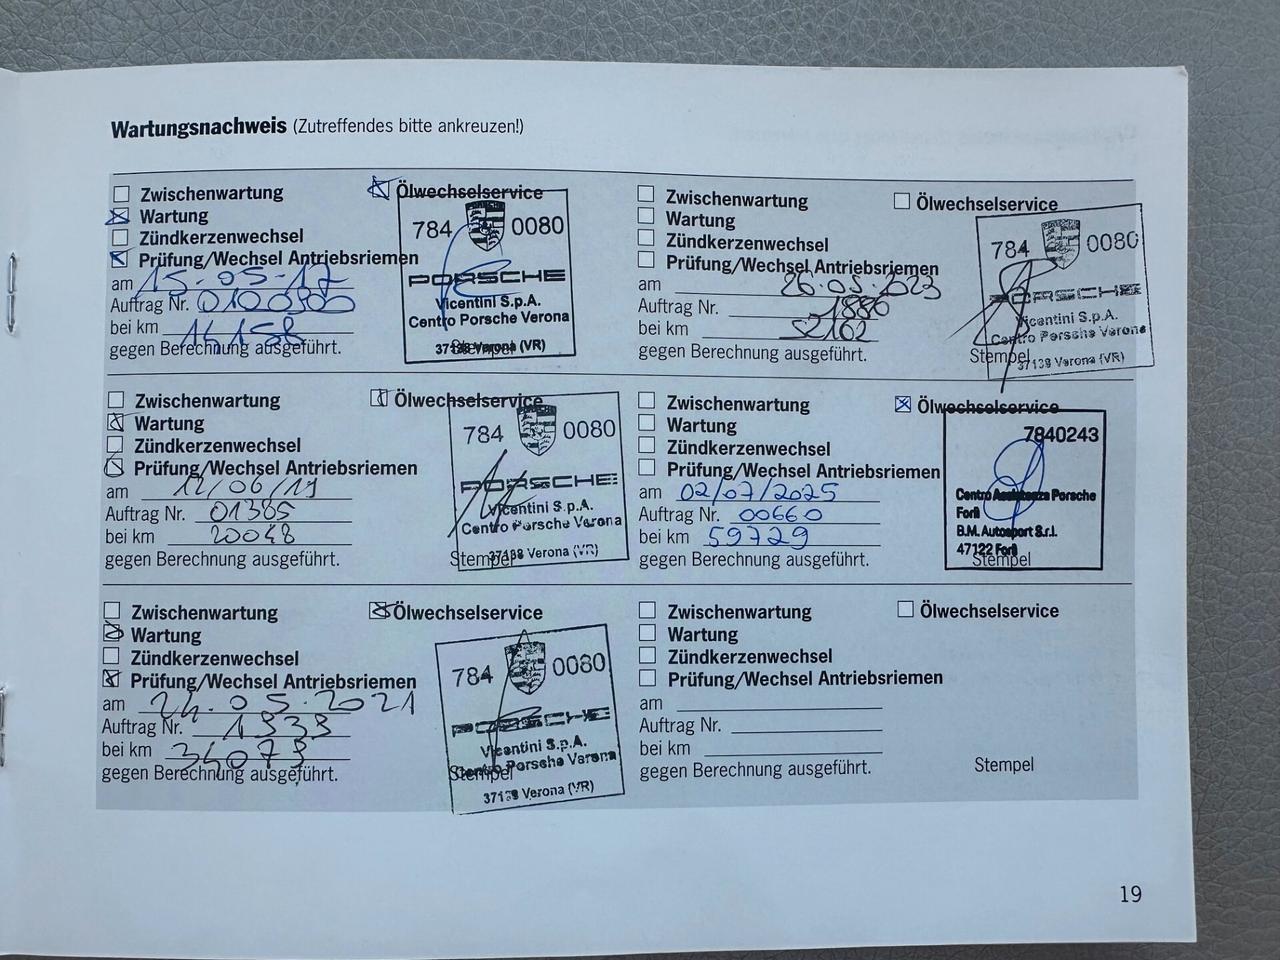 Wartungsnachweis (Zutreffendes bitte ankreuzen!)
Zwischenwartung
Ölwechselservice
Wartung
Zündkerzenwechsel
Prüfung/Wechsel Antriebsriemen
am 15-05-17
Auftrag Nr. 0100300
bei km 14158
gegen Berechnung ausgeführt.
Stempel
784 0080
PORSCHE
Vicentini S.p.A.
Centro Porsche Verona
37138 Verona (VR)
Zwischenwartung
Ölwechselservice
Wartung
Zündkerzenwechsel
Prüfung/Wechsel Antriebsriemen
am 12/06/19
Auftrag Nr. 01385
bei km 20048
gegen Berechnung ausgeführt.
Stempel
784 0080
PORSCHE
Vicentini S.p.A.
Centro Porsche Verona
37138 Verona (VR)
Zwischenwartung
Ölwechselservice
Wartung
Zündkerzenwechsel
Prüfung/Wechsel Antriebsriemen
am 24.05.2021
Auftrag Nr. 1333
bei km 34073
gegen Berechnung ausgeführt.
Stempel
784 0080
PORSCHE
Vicentini S.p.A.
Centro Porsche Verona
37138 Verona (VR)
Zwischenwartung
Ölwechselservice
Wartung
Zündkerzenwechsel
Prüfung/Wechsel Antriebsriemen
am 26.05.2023
Auftrag Nr. 1886
bei km 52102
gegen Berechnung ausgeführt.
Stempel
784 0080
PORSCHE
Vicentini S.p.A.
Centro Porsche Verona
37138 Verona (VR)
Zwischenwartung
Ölwechselservice
Wartung
Zündkerzenwechsel
Prüfung/Wechsel Antriebsriemen
am 02/07/2025
Auftrag Nr. 00660
bei km 59729
gegen Berechnung ausgeführt.
Stempel
7840243
Centro Assistenza Porsche
Forlì
B.M. Autosport S.r.l.
47122 Forlì
Zwischenwartung
Ölwechselservice
Wartung
Zündkerzenwechsel
Prüfung/Wechsel Antriebsriemen
am
Auftrag Nr.
bei km
gegen Berechnung ausgeführt.
Stempel
19